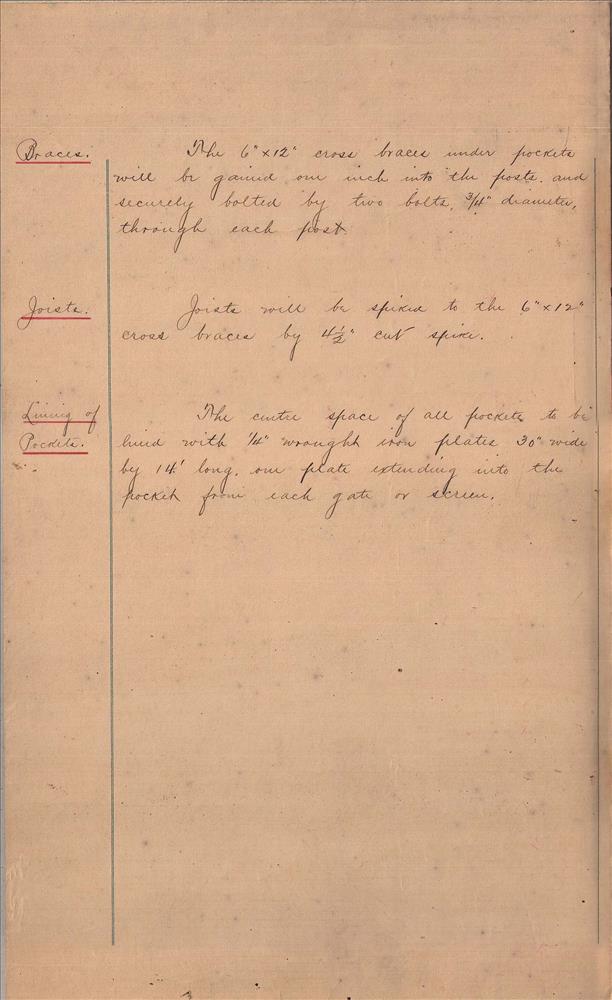 Braces.
The 6" x 12" cross braces under pockets
will be gained one inch into the posts. and
securely bolted by two bolts, 3/4" diameter,
through each post.
Joists.
Joists will be spiked to the 6" x 12"
cross braces by 4 1/2" cut spike.
Lining of
Pockets.
The centre space of all pockets to be
lined with 1/4" wrought iron plates 30" wide
by 14' long. one plate extending into the
pocket from each gate or screen.